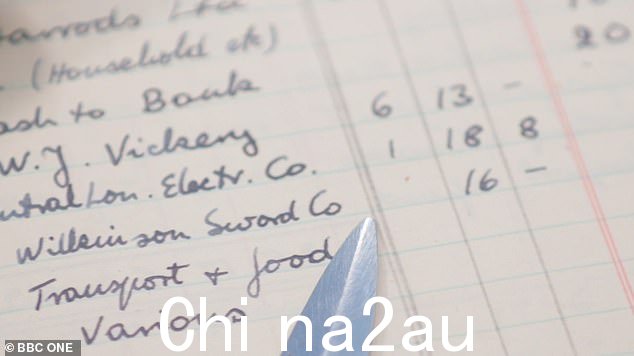 arrods Ltd
(Household etc)
ash to Bank 20
W.J. Vickery 6 13 -
ntral Lon. Electr. Co. 1 18 8
Wilkinson Sword Co 16 -
Transport + food
Various
Chi na2au
BBC ONE